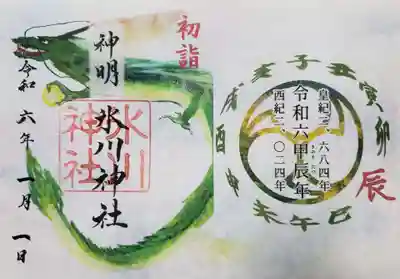 初詣
神明
氷川神社
氷川神社
令和六年一月一日
皇紀二、六八四年
令和六甲辰年
きのえたつ
西紀二、〇二四年
子丑寅卯辰巳午未申酉戌亥